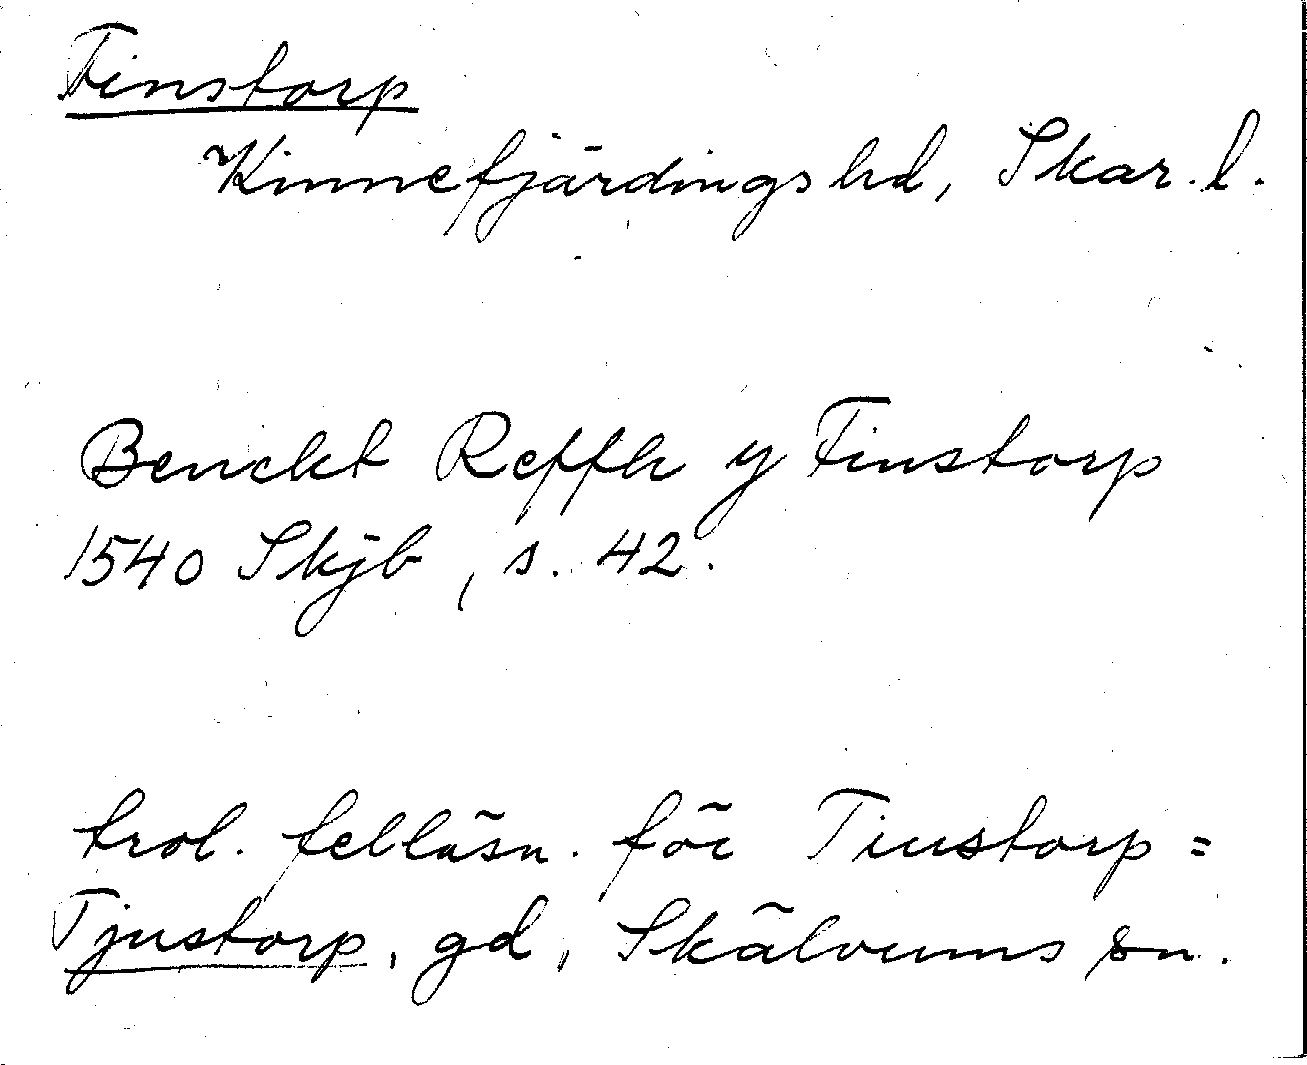 Finstorp
Kinnefjärdings hd, Skar. l.
Benckt Reffh y Finstorp
1540 Skjb, s. 42.
trol. felläsn. för Tiustorp =
Tjustorp, gd, Skälvums sn.